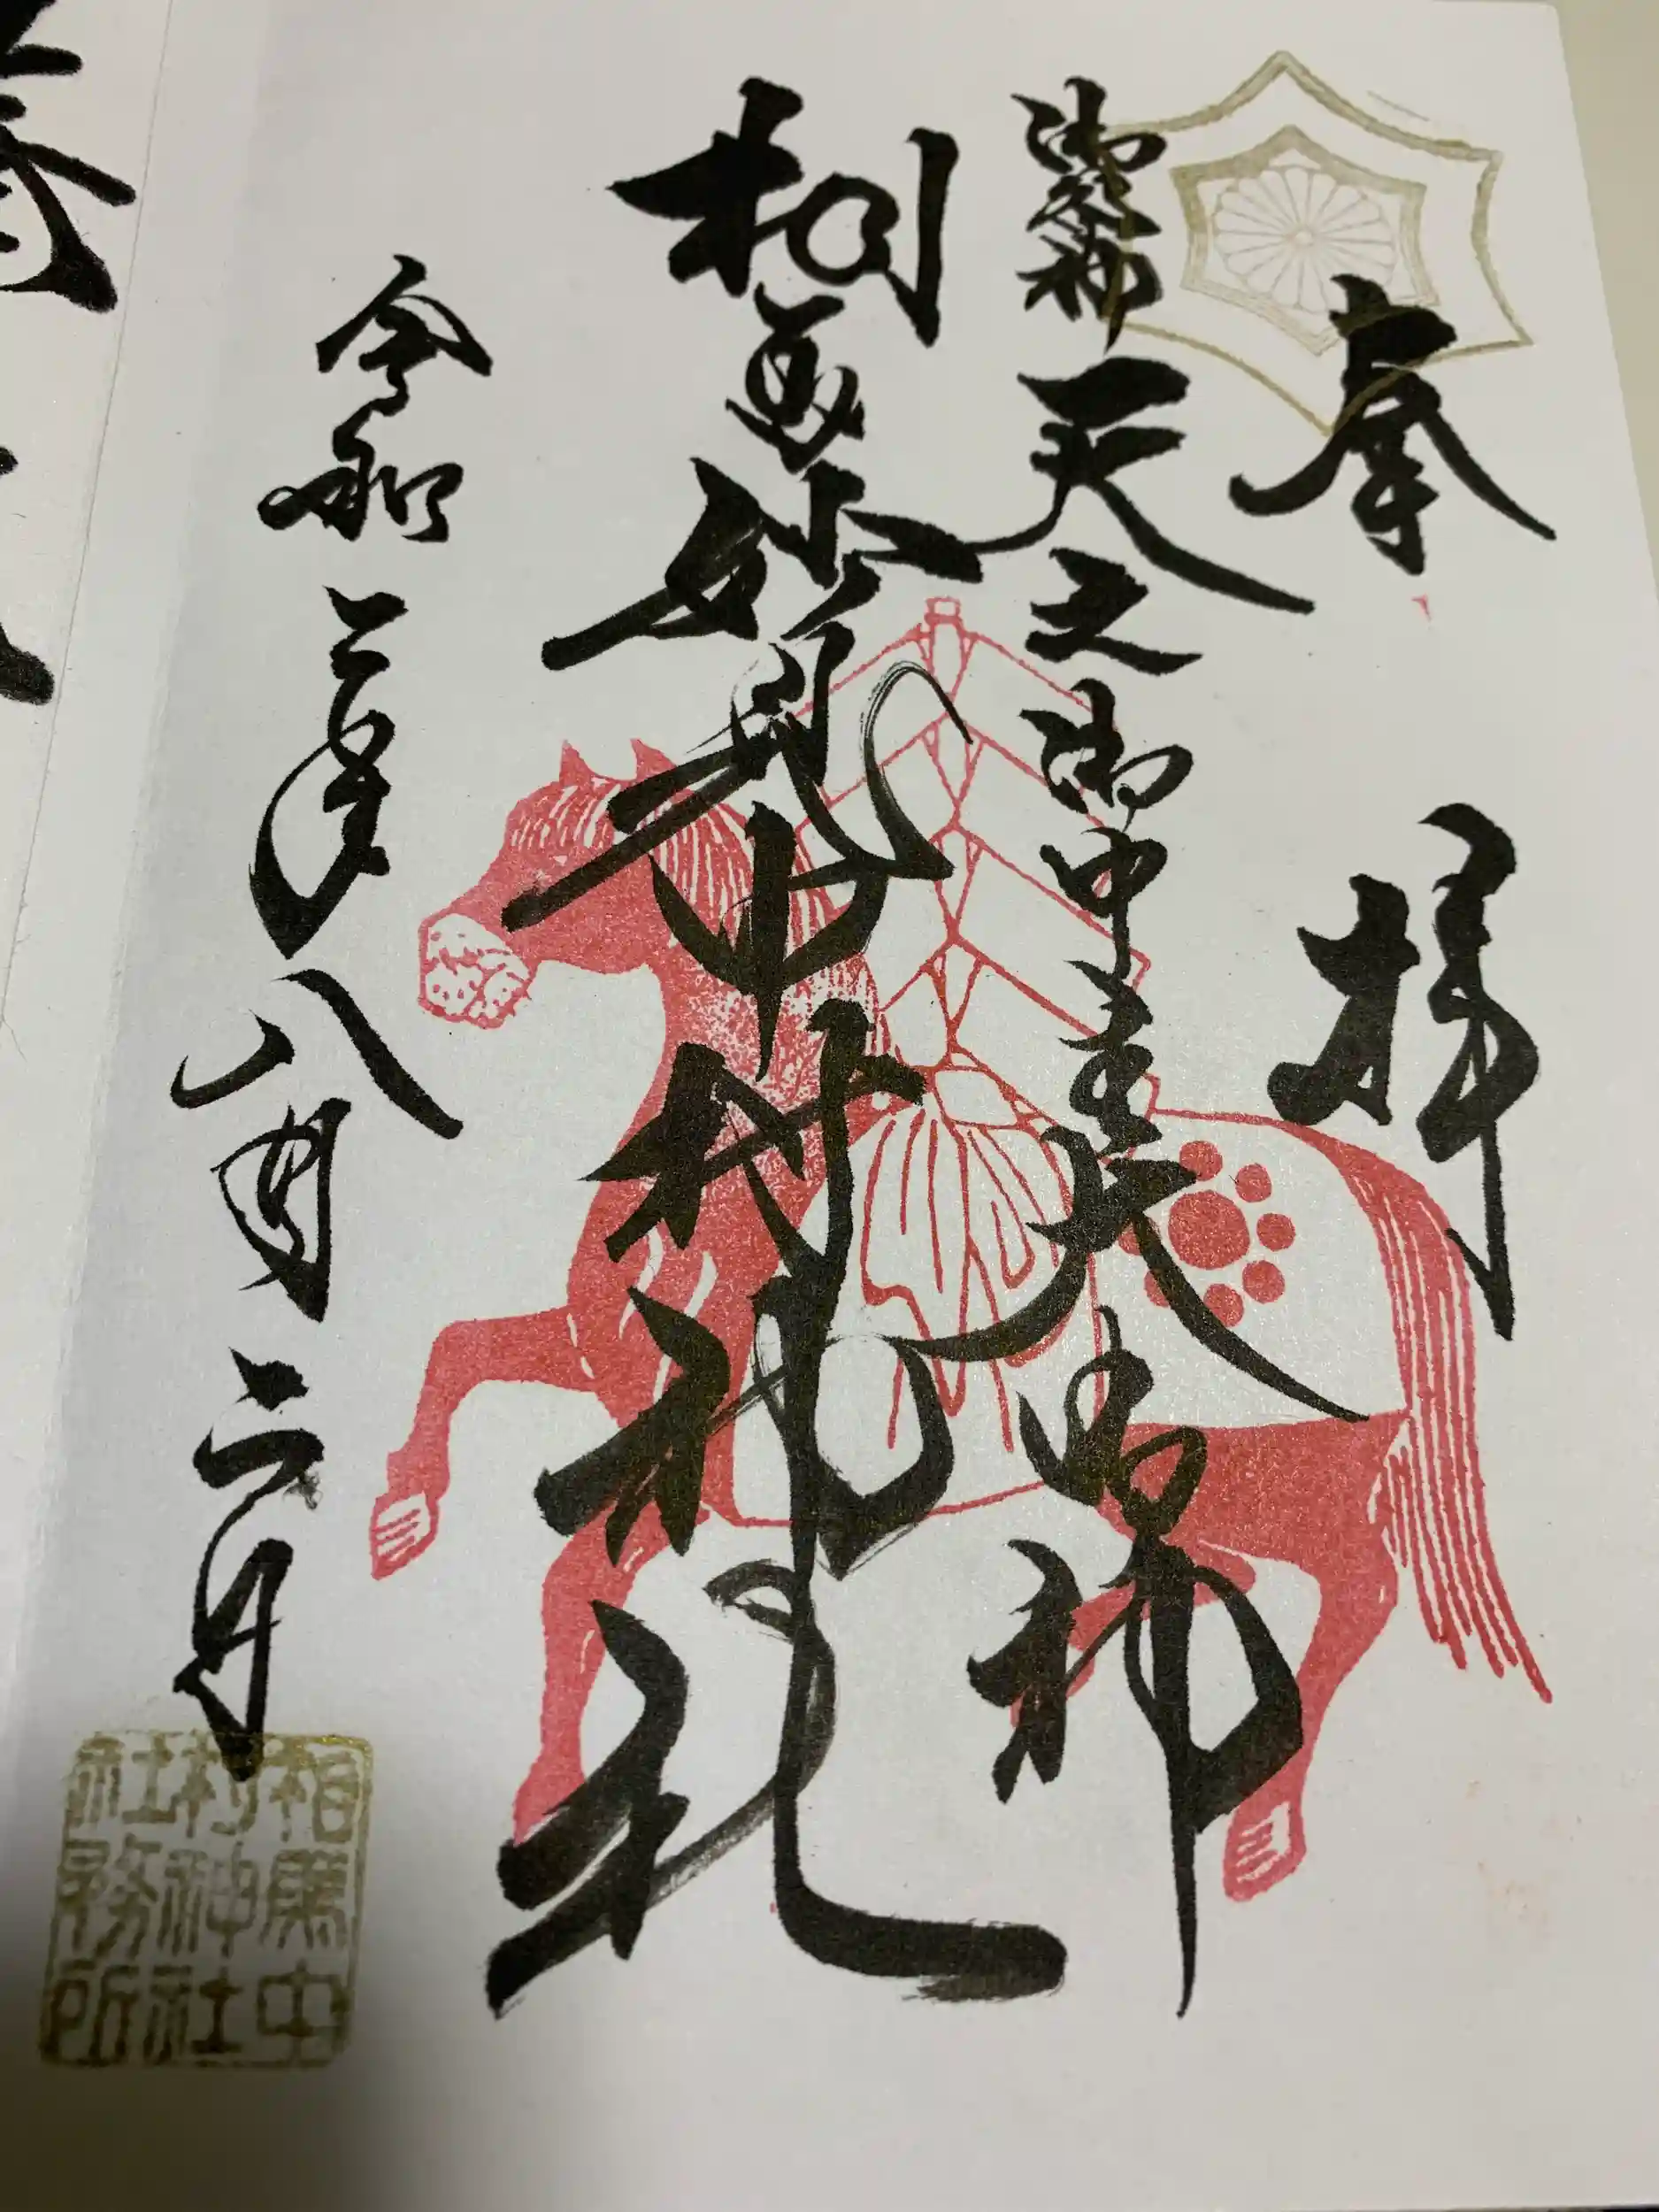 奉拝
御祭神 天之御中主大神
相馬妙見中村神社
令和二年八月二日
相馬中
村神社
社務所